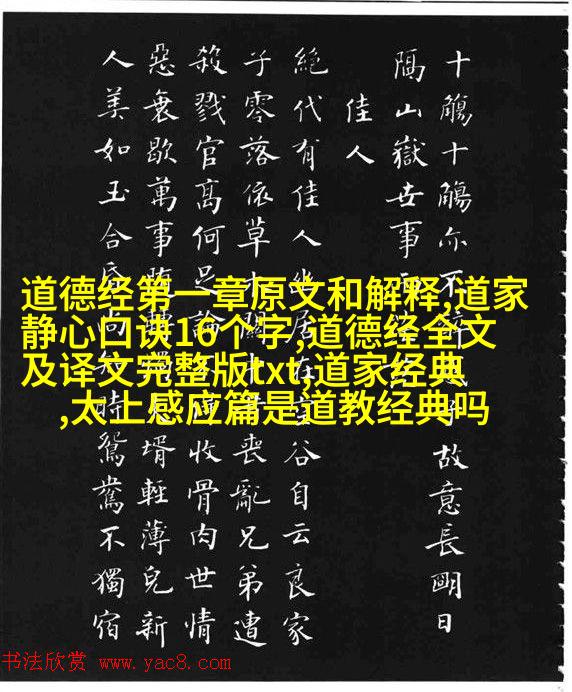 十觴十觴亦不醉子故意長朙日
隔山嶽世事兩
佳人
絕代有佳人幽居在空谷自云良家
子零落依草木關中昔喪亂兄弟遭
殺戮官高何足論得收骨肉世情
惡衰歇萬事隨轉燭婿輕薄兒新
人美如玉合昏尚知時鴛鴦不獨宿
道德经第一章原文和解释,道家
静心口诀16个字,道德经全文
及译文完整版txt,道家经典
,太上感应篇是道教经典吗
书法欣赏 www.yac8.com